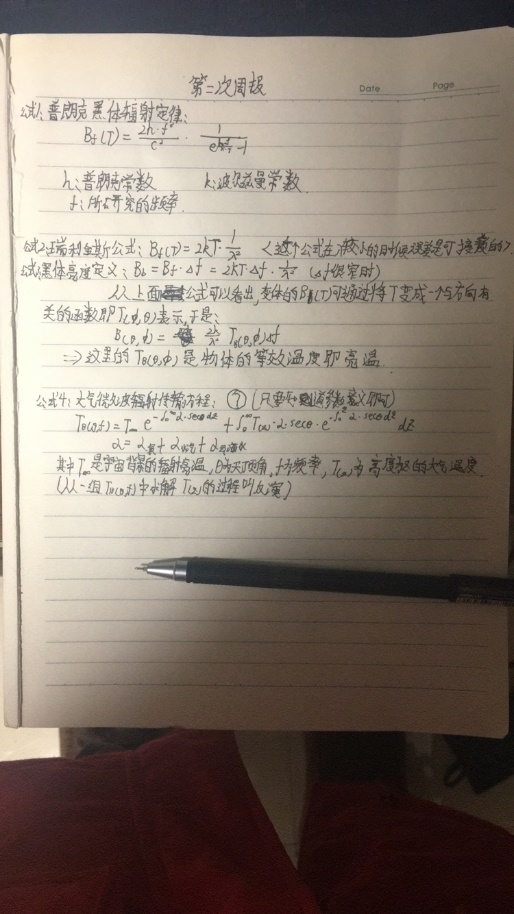 第二次周报
Date Page
公式1: 普朗克黑体辐射定律:
B_f(T) = 2h·f³/c² · 1/(e^(hf/kT)-1)
h: 普朗克常数 k: 波尔兹曼常数
f: 所研究的频率
公式2: 瑞利金斯公式: B_f(T) = 2kT·1/λ² <这个公式在f较小的时候误差是可接受的>
公式: 黑体亮度定义: B_b = B_f·Δf = 2kT·Δf·1/λ² (Δf很窄时)
从上面公式可以看出, 变体的B(T)可通过将T变成一个与方向有
关的函数即T(θ,φ)表示, 于是:
B(θ,φ) = 2k/λ² T_B(θ,φ)Δf
⇒ 这里的T_B(θ,φ)是物体的等效温度即亮温
公式4: 大气微波辐射传输方程: (只要知道参数意义即可)
T_B(θ,f) = T∞ e^(-∫₀^∞ α·secθ dz) + ∫₀^∞ T(z)·α·secθ·e^(-∫₀^z α·secθ dz) dz
其中T∞是宇宙背景的辐射亮温, θ为天顶角, f为频率, T(z)为高度z的大气温度
(从一组T_B(θ,f)中求解T(z)的过程叫反演)